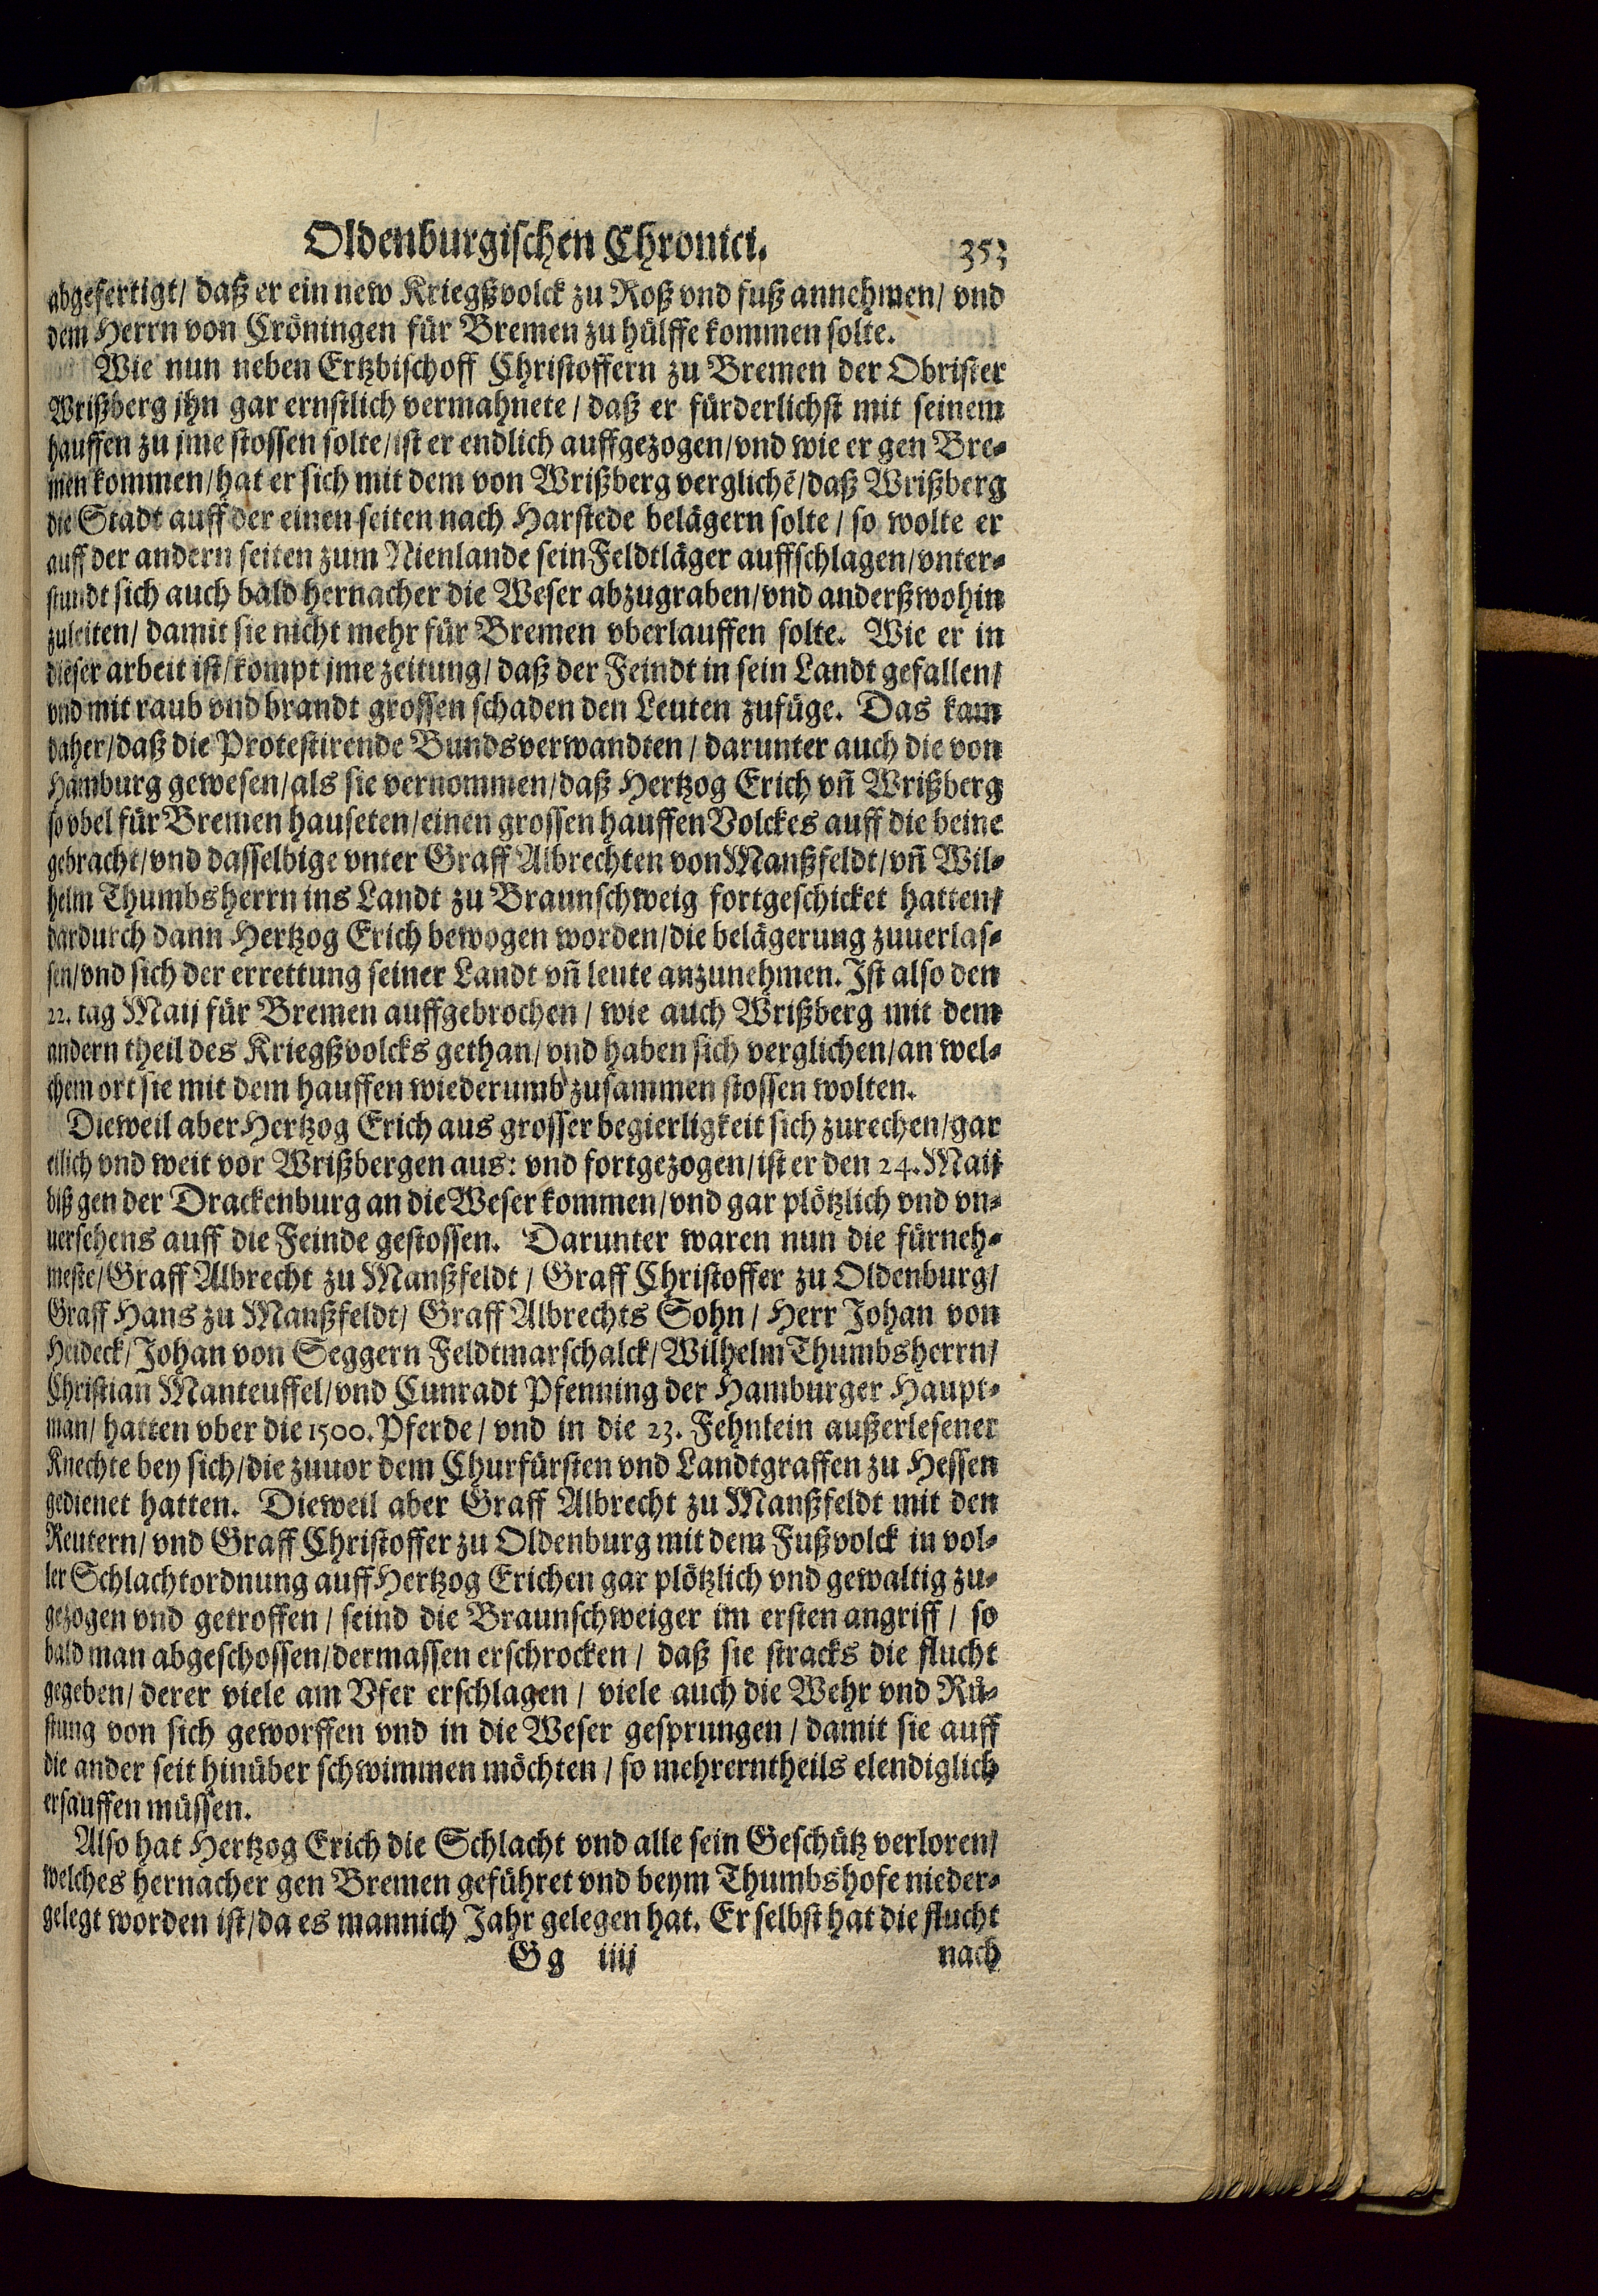 Oldenburgischen Chronici. 353
abgefertigt/ daß er ein new Kriegßvolck zu Roß vnd fuß annehmen/ vnd
dem Herrn von Cröningen für Bremen zu hülffe kommen solte.
Wie nun neben Ertzbischoff Christoffern zu Bremen der Obrister
Wrißberg jhn gar ernstlich vermahnete / daß er fürderlichst mit seinem
hauffen zu jme stossen solte/ ist er endlich auffgezogen/ vnd wie er gen Bre-
men kommen/ hat er sich mit dem von Wrißberg verglichẽ/ daß Wrißberg
die Stadt auff der einen seiten nach Harstede belägern solte / so wolte er
auff der andern seiten zum Nienlande sein Feldtläger auffschlagen/ vnter-
stundt sich auch bald hernacher die Weser abzugraben/ vnd anderßwohin
zuleiten/ damit sie nicht mehr für Bremen vberlauffen solte. Wie er in
dieser arbeit ist/ kompt jme zeitung/ daß der Feindt in sein Landt gefallen/
vnd mit raub vnd brandt grossen schaden den Leuten zufüge. Das kam
daher/ daß die Protestirende Bundsverwandten / darunter auch die von
Hamburg gewesen/ als sie vernommen/ daß Hertzog Erich vñ Wrißberg
so vbel für Bremen hauseten/ einen grossen hauffen Volckes auff die beine
gebracht/ vnd dasselbige vnter Graff Albrechten von Manßfeldt/ vñ Wil-
helm Thumbsherrn ins Landt zu Braunschweig fortgeschicket hatten/
dardurch dann Hertzog Erich bewogen worden/ die belägerung zuuerlas-
sen/ vnd sich der errettung seiner Landt vñ leute anzunehmen. Ist also den
22. tag Maij für Bremen auffgebrochen / wie auch Wrißberg mit dem
andern theil des Kriegßvolcks gethan/ vnd haben sich verglichen/ an wel-
chem ort sie mit dem hauffen wiederumb zusammen stossen wolten.
Dieweil aber Hertzog Erich aus grosser begierligkeit sich zurechen/ gar
eilich vnd weit vor Wrißbergen aus: vnd fortgezogen/ ist er den 24. Maij
biß gen der Drackenburg an die Weser kommen/ vnd gar plötzlich vnd vn-
uersehens auff die Feinde gestossen. Darunter waren nun die fürneh-
meste/ Graff Albrecht zu Manßfeldt / Graff Christoffer zu Oldenburg/
Graff Hans zu Manßfeldt/ Graff Albrechts Sohn / Herr Johan von
Heideck/ Johan von Seggern Feldtmarschalck/ Wilhelm Thumbsherrn/
Christian Manteuffel/ vnd Cunradt Pfenning der Hamburger Haupt-
man/ hatten vber die 1500. Pferde / vnd in die 23. Fehnlein außerlesener
Knechte bey sich/ die zuuor dem Churfürsten vnd Landtgraffen zu Hessen
gedienet hatten. Dieweil aber Graff Albrecht zu Manßfeldt mit den
Reutern/ vnd Graff Christoffer zu Oldenburg mit dem Fußvolck in vol-
ler Schlachtordnung auff Hertzog Erichen gar plötzlich vnd gewaltig zu-
gezogen vnd getroffen / seind die Braunschweiger im ersten angriff / so
bald man abgeschossen/ dermassen erschrocken / daß sie stracks die flucht
gegeben/ derer viele am Vfer erschlagen / viele auch die Wehr vnd Rü-
stung von sich geworffen vnd in die Weser gesprungen / damit sie auff
die ander seit hinüber schwimmen möchten / so mehrerntheils elendiglich
ersauffen müssen.
Also hat Hertzog Erich die Schlacht vnd alle sein Geschütz verloren/
welches hernacher gen Bremen geführet vnd beym Thumbshofe nieder-
gelegt worden ist/ da es mannich Jahr gelegen hat. Er selbst hat die flucht
Gg iiij nach